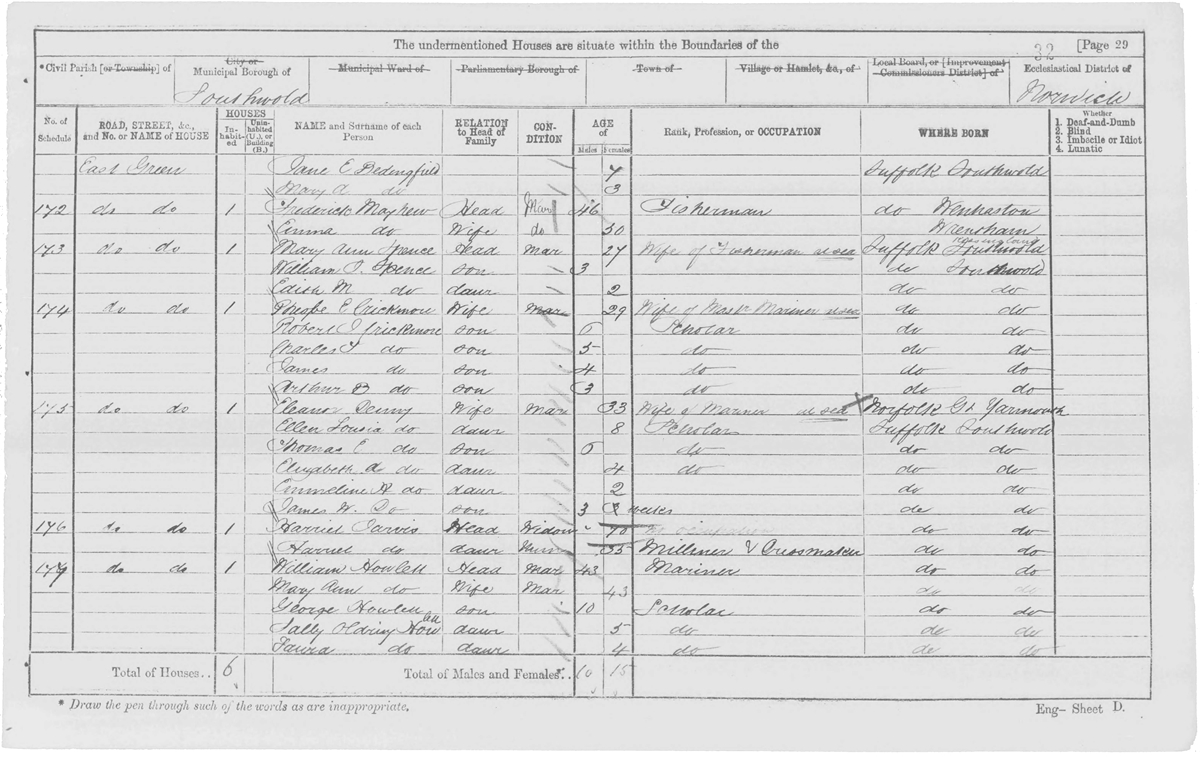 The undermentioned Houses are situate within the Boundaries of the
32 [Page 29
*Civil Parish [or Township] of
City or Municipal Borough of
Municipal Ward of
Parliamentary Borough of
Town of
Village or Hamlet, &c., of
Local Board, or [Improvement Commissioners District] of
Ecclesiastical District of
Southwold Norwich
No. of Schedule
ROAD, STREET, &c., and No. or NAME of HOUSE
HOUSES
In-habit-ed
Unin-habited (U.), or Building (B.)
NAME and Surname of each Person
RELATION to Head of Family
CON-DITION
AGE of
Males Females
Rank, Profession, or OCCUPATION
WHERE BORN
Whether
1. Deaf-and-Dumb
2. Blind
3. Imbecile or Idiot
4. Lunatic
East Green Jane E Bedingfield 7 Suffolk Southwold
Mary A do 3
172 do do 1 Frederick Mayhew Head Mar 46 Fisherman do Wenhaston
Emma do Wife do 50 Wrentham
173 do do 1 Mary Ann Spence Head Mar 27 Wife of Fisherman at sea Suffolk Kessingland Southwold
William Spence son 3 do Southwold
Edith M do daur 2 do do
174 do do 1 Phoebe E Crickmore Wife Mar 29 Wife of Mast Mariner at sea do do
Robert J Crickmore son 6 Scholar do do
Charles do son 5 do do do
James do son 4 do do do
Arthur B do son 3 do do do
175 do do 1 Eleanor Denny Wife Mar 33 Wife of Mariner at sea Norfolk Gt Yarmouth
Ellen Lousia do daur 8 Scholar Suffolk Southwold
Thomas E do son 6 do do do
Elizabeth A do daur 4 do do do
Emmeline A do daur 2 do do
James W. Do son 3 weeks do do
176 do do 1 Harriet Jarvis Head Widow 70 No occupation do do
Harriet do daur 35 Milliner & Dressmaker do do
177 do do 1 William Howlett Head Mar 43 Mariner do do
Mary Ann do Wife Mar 43 do do
George Howlett son 10 Scholar do do
Sally Oldring Howlett daur 5 do do do
Laura do daur 4 do de do
Total of Houses.. 6 Total of Males and Females.. 10 15
* Draw the pen through such of the words as are inappropriate.
Eng- Sheet D.